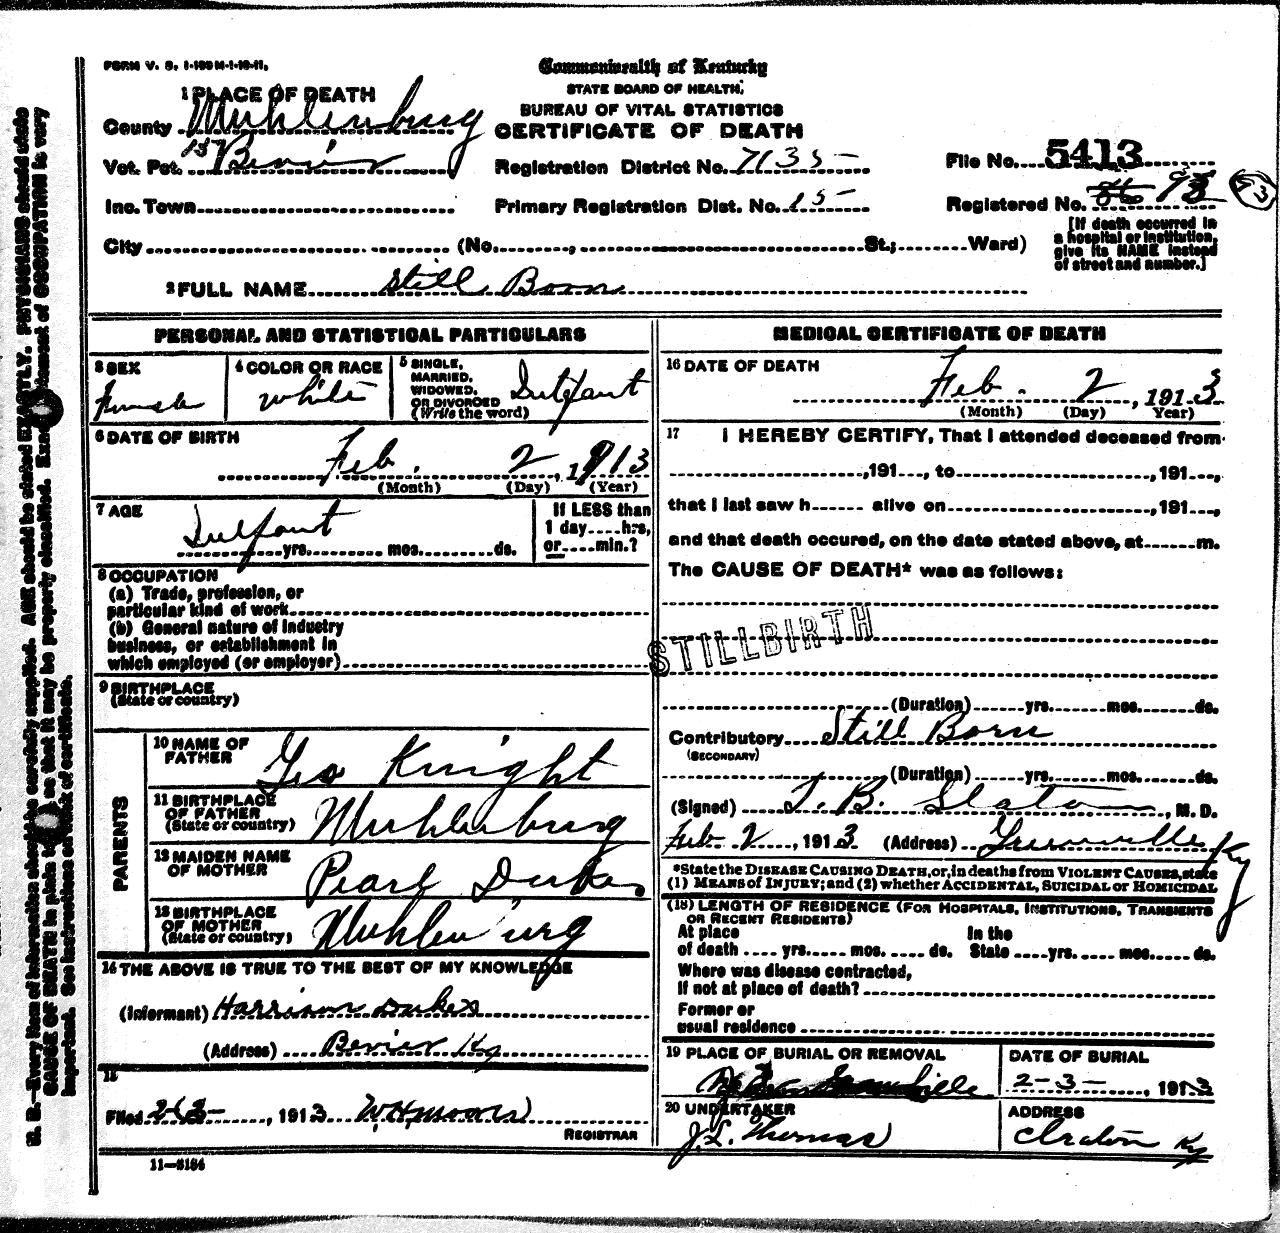 FORM V. S. 1-199 M-1-10-11.
Commonwealth of Kentucky
STATE BOARD OF HEALTH,
BUREAU OF VITAL STATISTICS
CERTIFICATE OF DEATH
1 PLACE OF DEATH
County Muhlenburg
Vot. Pct. 157 Bevier
Registration District No. 7135
File No. 5413
Inc. Town
Primary Registration Dist. No. 15
Registered No. 93
City (No. , St.; Ward)
[If death occurred in
a hospital or institution,
give its NAME instead
of street and number.]
2 FULL NAME Still Born
PERSONAL AND STATISTICAL PARTICULARS
3 SEX
Female
4 COLOR OR RACE
white
5 SINGLE,
MARRIED,
WIDOWED,
OR DIVORCED
(Write the word)
Infant
6 DATE OF BIRTH
Feb. 2, 1913
(Month) (Day) (Year)
7 AGE
Infant
yrs. mos. ds.
If LESS than
1 day hrs,
or min.?
8 OCCUPATION
(a) Trade, profession, or
particular kind of work
(b) General nature of industry
business, or establishment in
which employed (or employer)
9 BIRTHPLACE
(State or country)
PARENTS
10 NAME OF
FATHER
Geo Knight
11 BIRTHPLACE
OF FATHER
(State or country)
Muhlenburg
12 MAIDEN NAME
OF MOTHER
Pearl Dukes
13 BIRTHPLACE
OF MOTHER
(State or country)
Muhlenburg
14 THE ABOVE IS TRUE TO THE BEST OF MY KNOWLEDGE
(Informant) Harrison Dukes
(Address) Bevier Ky
15
Filed 2-3-, 1913 W.H. Moore
REGISTRAR
11-3184
MEDICAL CERTIFICATE OF DEATH
16 DATE OF DEATH
Feb. 2, 1913
(Month) (Day) Year)
17 I HEREBY CERTIFY, That I attended deceased from
,191 , to ,191 ,
that I last saw h alive on ,191 ,
and that death occured, on the date stated above, at m.
The CAUSE OF DEATH* was as follows:
STILLBIRTH
(Duration) yrs. mos. ds.
Contributory Still Born
(SECONDARY)
(Duration) yrs. mos. ds.
(Signed) T. B. Slaton, M. D.
Feb 2, 1913 (Address) Greenville Ky
*State the DISEASE CAUSING DEATH, or, in deaths from VIOLENT CAUSES, state
(1) MEANS of INJURY; and (2) whether ACCIDENTAL, SUICIDAL or HOMICIDAL
(18) LENGTH OF RESIDENCE (FOR HOSPITALS, INSTITUTIONS, TRANSIENTS
OR RECENT RESIDENTS)
At place
of death yrs. mos. ds.
In the
State yrs. mos. ds.
Where was disease contracted,
if not at place of death?
Former or
usual residence
19 PLACE OF BURIAL OR REMOVAL
DATE OF BURIAL
2-3-, 1913
20 UNDERTAKER
J. L. Thomas
ADDRESS
Ky
N. B.—Every item of information should be carefully supplied. AGE should be stated EXACTLY. PHYSICIANS should state
CAUSE OF DEATH in plain so that it may be properly classified. Exact statement of OCCUPATION is very
important. See instructions on back of certificate.